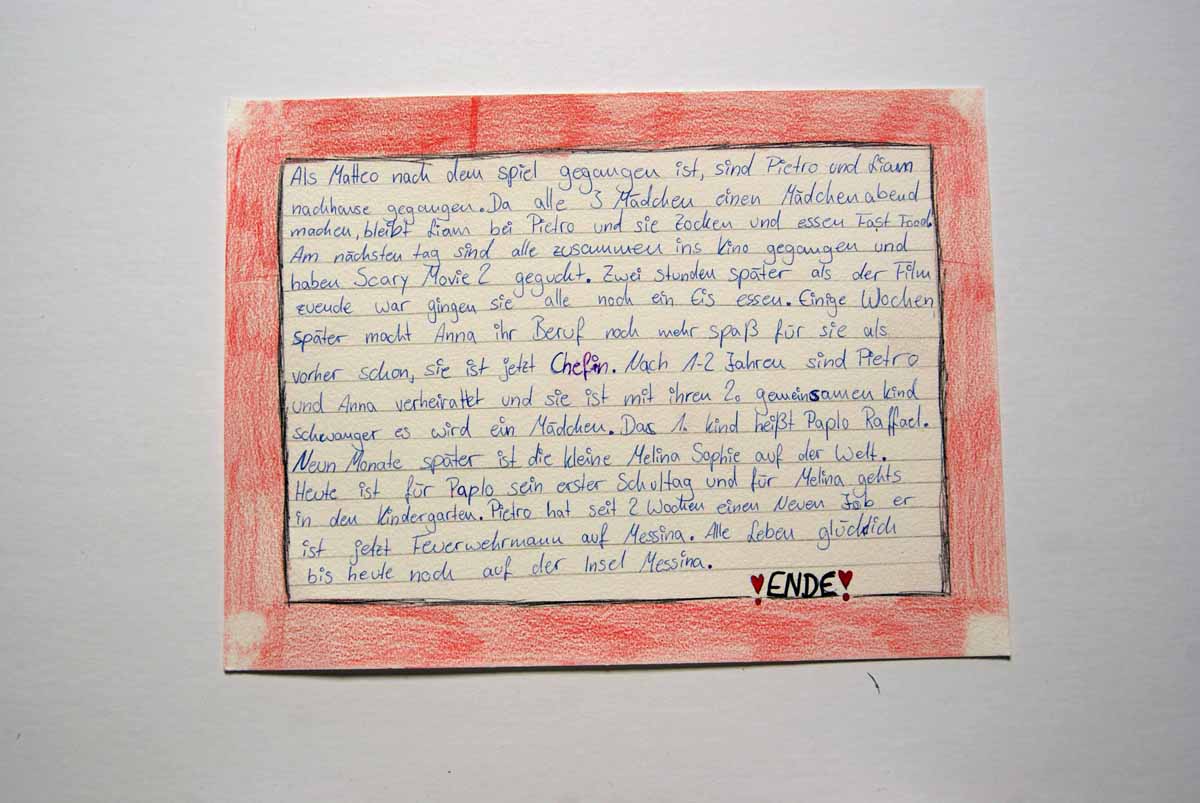 Als Matteo nach dem spiel gegangen ist, sind Pietro und Liam
nachhause gegangen. Da alle 3 Mädchen einen Mädchenabend
machen, bleibt Liam bei Pietro und sie Zocken und essen Fast Food.
Am nächsten tag sind alle zusammen ins kino gegangen und
haben Scary Movie 2 geguckt. Zwei stunden später als der Film
zuende war gingen sie alle noch ein Eis essen. Einige Wochen
später macht Anna ihr Beruf noch mehr spaß für sie als
vorher schon, sie ist jetzt Chefin. Nach 1-2 Jahren sind Pietro
und Anna verheirattet und sie ist mit ihren 2. gemeinsamen kind
schwanger es wird ein Mädchen. Das 1. kind heißt Paplo Raffael.
Neun Monate später ist die kleine Melina Sophie auf der Welt.
Heute ist für Paplo sein erster Schultag und für Melina gehts
in den Kindergarten. Pietro hat seit 2 Wochen einen Neuen Job er
ist jetzt Feuerwehrmann auf Messina. Alle Leben glücklich
bis heute noch auf der Insel Messina.
!ENDE!